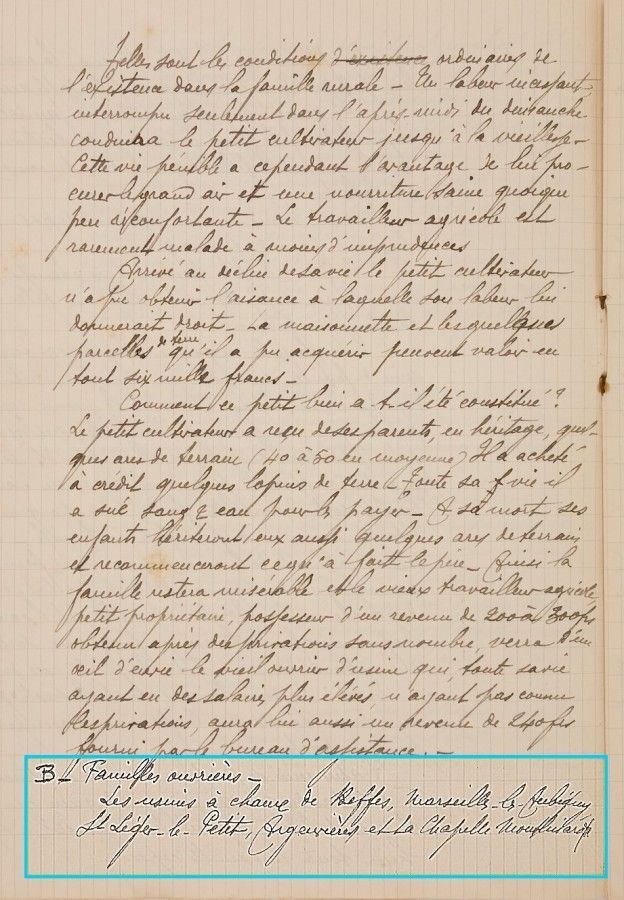 Telles sont les conditions d'existence ordinaires de
l'existence dans la famille rurale - Un labeur incessant,
interrompu seulement dans l'après-midi du dimanche
conduira le petit cultivateur jusqu'à la vieillesse -
Cette vie pénible a cependant l'avantage de lui pro-
curer le grand air et une nourriture saine quoique
peu réconfortante - Le travailleur agricole est
rarement malade à moins d'imprudences
Arrivé au déclin de sa vie le petit cultivateur
n'a pu obtenir l'aisance à laquelle son labeur lui
donnerait droit - La maisonnette et les quelques
parcelles de terre qu'il a pu acquérir peuvent valoir en
tout six mille francs -
Comment ce petit bien a-t-il été constitué ?
Le petit cultivateur a reçu de ses parents, en héritage, quel-
ques ares de terrain (40 à 50 en moyenne) Il a acheté
à crédit quelques lopins de terre - Toute sa vie il
a sué sang & eau pour les payer - A sa mort ses
enfants hériteront eux aussi quelques ares de terrain
et recommenceront ce qu'a fait le père - Ainsi la
famille restera misérable et le vieux travailleur agricole
petit propriétaire, possesseur d'un revenu de 200 à 300 frs
obtenu après des privations sans nombre, verra d'un
œil d'envie le vieil ouvrier d'usine qui, toute sa vie
ayant eu des salaires plus élevés, n'ayant pas connu
les privations, aura lui aussi un revenu de 240 frs
fourni par le bureau d'assistance. -
B - Familles ouvrières -
Les usines à chaux de Beffes, Marseille-lès-Aubigny
St Léger-le-Petit, Argenvières et La Chapelle Montlinard